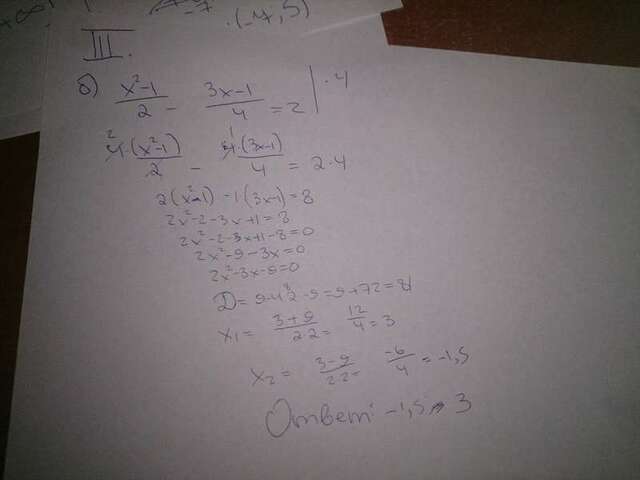 (-7, 5)
III.
б) x²-1/2 - 3x-1/4 = 2 | · 4
4·(x²-1)/2 - 4·(3x-1)/4 = 2·4
2(x²-1) - 1(3x-1) = 8
2x²-2-3x+1=8
2x²-2-3x+1-8=0
2x²-9-3x=0
2x²-3x-9=0
D= 9-4·2·-9=9+72=81
x₁= 3+9/2·2= 12/4=3
x₂= 3-9/2·2= -6/4=-1,5
Ответ: -1,5 и 3